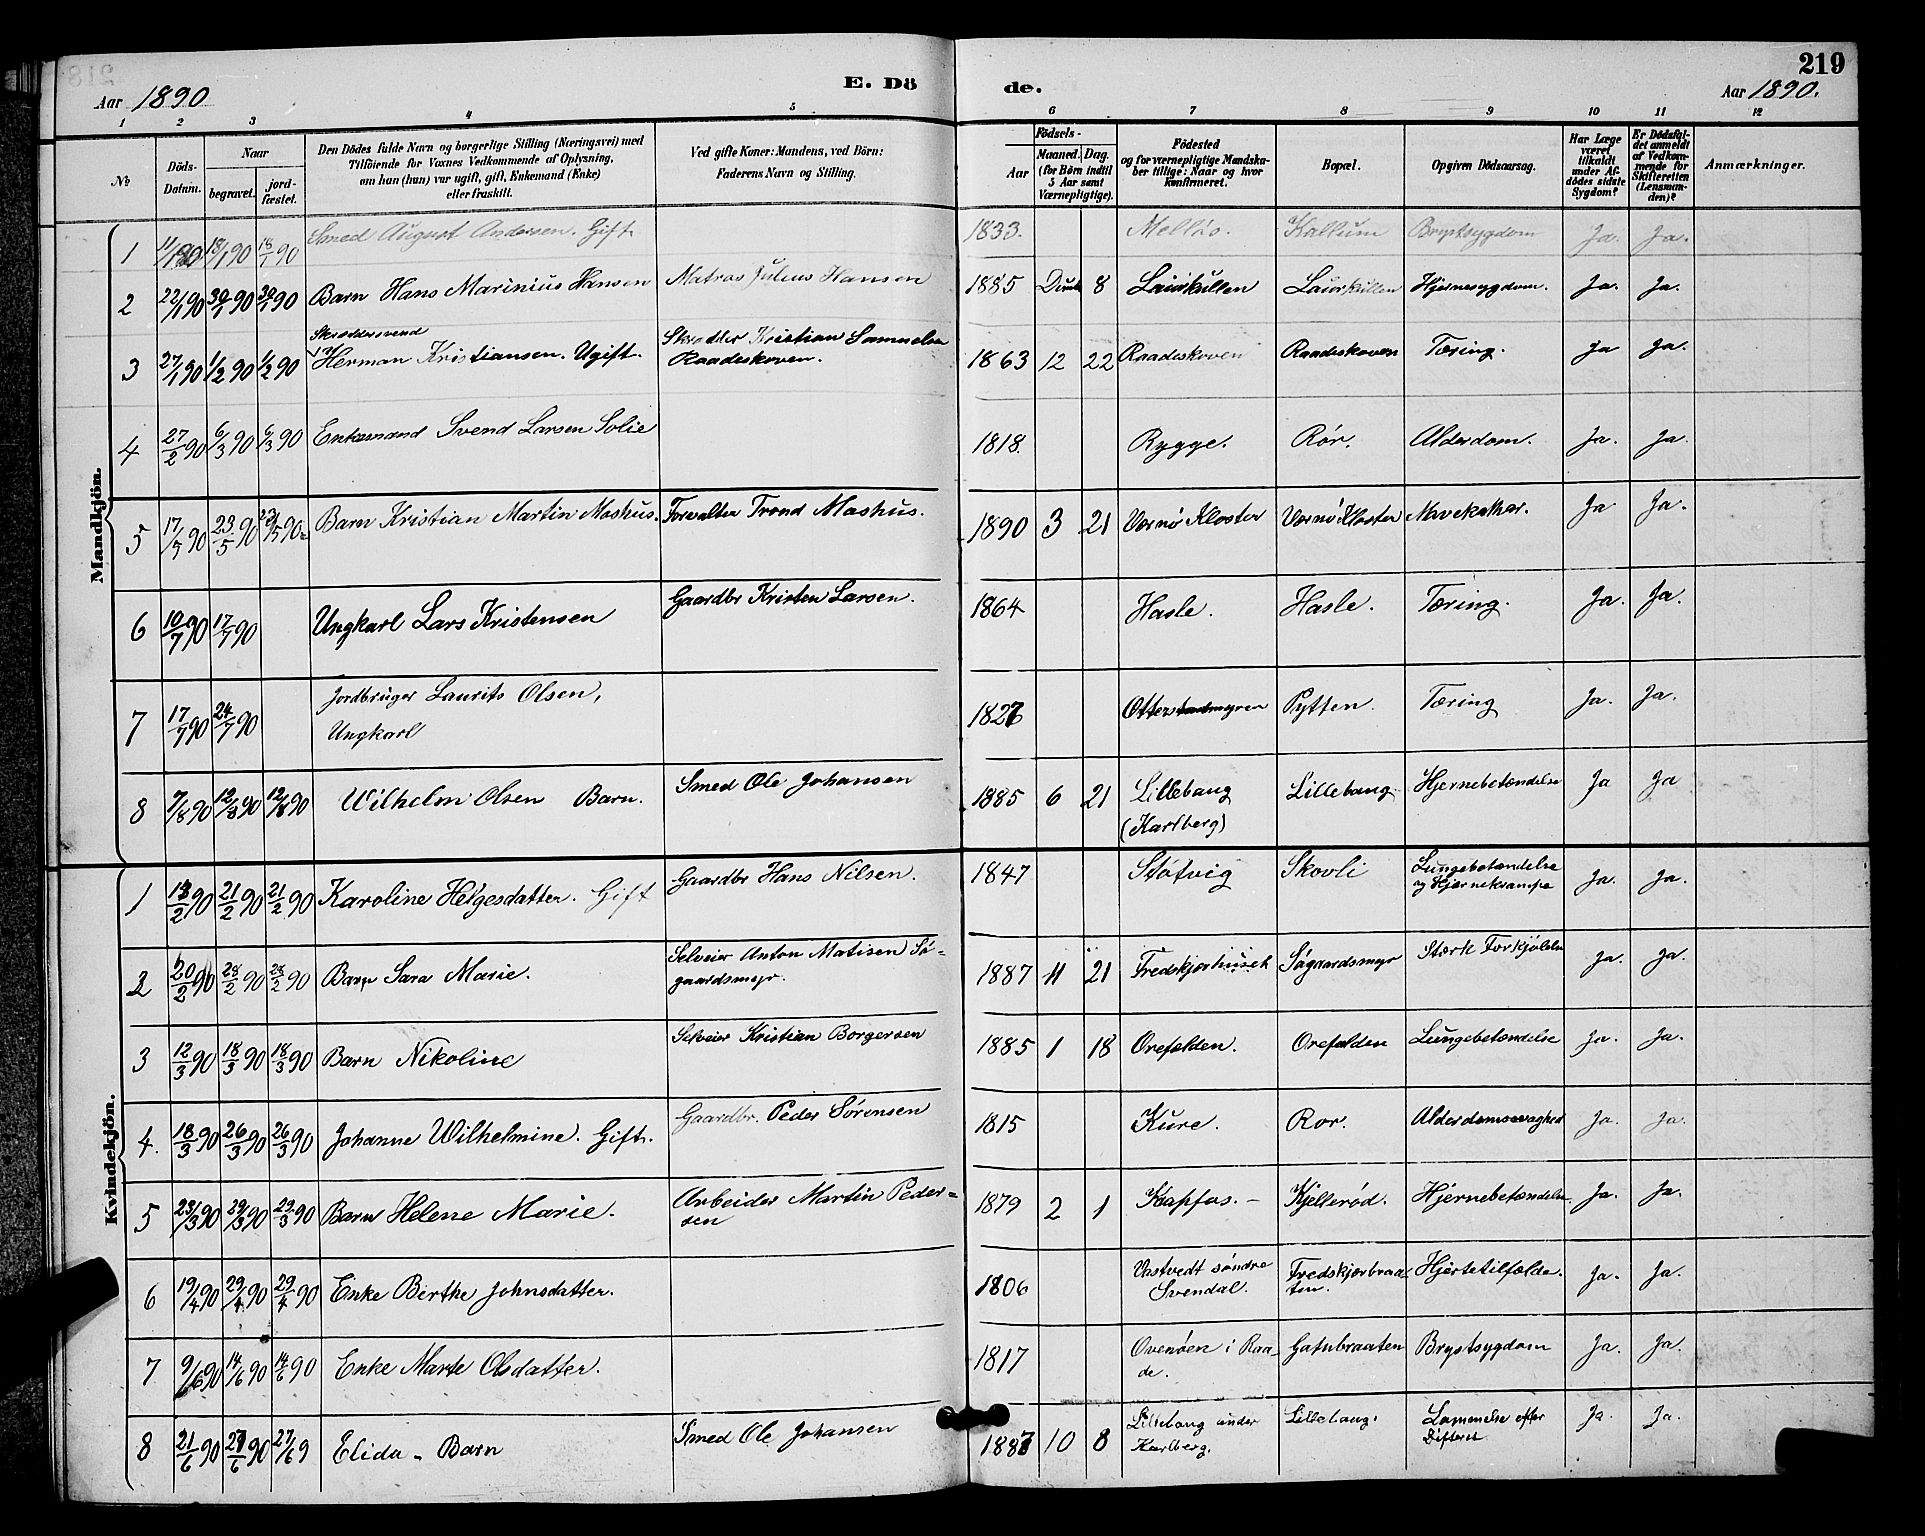 219
Aar 1890
E. Dö
de.
Aar 1890.
1 2 3 4 5 6 7 8 9 10 11 12
№
Döds-
Datum.
Naar
begravet.
jord-
fæstet.
Den Dödes fulde Navn og borgerlige Stilling (Næringsvei) med
Tilföiende for Voxnes Vedkommende af Oplysning,
om han (hun) var ugift, gift, Enkemand (Enke)
eller fraskilt.
Ved gifte Koner: Mandens, ved Börn:
Faderens Navn og Stilling.
Födsels-
Aar
Maaned.
Dag.
(for Børn indtil
5 Aar samt
Værnepligtige).
Födested
og for værnepligtige Mandska-
ber tillige: Naar og hvor
Konfirmeret.
Bopæl.
Opgiven Dödsaarsag.
Har Læge
været
tilkaldt
under Af-
dödes sidste
Sygdom?
Er Dödsfal-
det anmeldt
af Vedkom-
mende for
Skifteretten
(Lensman-
den)?
Anmærkninger.
Mandkjön.
1 18/1 90 18/1 90 Smed August Andersen. Gift 1833. Mellös. Kallum Brystsygdom Ja. Ja.
2 22/1 90 30/1 90 30/1 90 Barn Hans Marinius Hansen Matros Julius Hansen 1885 8 Laiörkullen Laiörkullen Hjernesygdom. Ja. Ja.
Skræddersvend
3 27/1 90 1/2 90 1/2 90 Herman Kristiansen. Ugift. Skrædder Kristian Samuelsen
Raadeskoven.
1863 12 22 Raadeskoven Raadeskoven Tæring. Ja Ja.
4 27/2 90 6/3 90 6/3 90 Enkemand Svend Larsen Solie 1818. Rygge. Rör. Alderdom. Ja. Ja.
5 17/5 90 23/5 90 23/5 90 Barn Kristian Martin Moshus. Forvalter Trond Moshus. 1890 3 21 Vernö Kloster Vernö Kloster Mavekathar. Ja Ja.
6 10/7 90 17/7 90 Ungkarl Lars Kristensen Gaardbr Kristen Larsen. 1864 Hasle. Hasle. Tæring. Ja. Ja.
7 17/7 90 24/7 90 Jordbruger Laurits Olsen,
Ungkarl
1827 Pytten. Tæring Ja. Ja.
8 7/8 90 12/8 90 12/8 90 Wilhelm Olsen Barn. Smed Ole Johansen 1885 6 21 Lillebaug
(Karlberg)
Lillebaug Hjernebetændelse Ja Ja
Kvindekjön.
1 13/2 90 21/2 90 21/2 90 Karoline Helgesdatter. Gift Gaardbr Hans Nilsen. 1847 Støtvig Skovli Lungebetændelse
og Hjernekrampe
Ja. Ja.
2 20/2 90 28/2 90 28/2 90 Barn Sara Marie. Selveier Anton Matisen Sö-
gaardsmyr.
1887 11 21 Fredskjærhuset Sögaardsmyr Stærk Forkjölelse Ja. Ja.
3 12/3 90 18/3 90 18/3 90 Barn Nikoline Selveier Kristian Borgersen 1885 1 18 Orefælden. Orefælden Lungebetændelse Ja. Ja.
4. 18/3 90 26/3 90 26/3 90 Johanne Wilhelmine. Gift. Gaardbr. Peder Sörensen 1815 Kure. Rör. Alderdomssvaghed Ja. Ja.
5 23/3 90 29/3 90 29/3 90 Barn Helene Marie. Arbeider Martin Peder=
sen
1879 2 1 Kapfos. - Kjellerød. Hjernebetændelse Ja. Ja.
6 19/4 90 29/4 90 29/4 90 Enke Birthe Johnsdatter. 1806 Vastvedt söndre
Svendal.
Fredskjærbraa-
ten.
Hjertetilfælde. Ja. Ja.
7 9/6 90 14/6 90 14/6 90 Enke Marte Olsdatter. 1817 Ovenöen i Raa-
de.
Gatubraaten Brystsygdom Ja. Ja.
8 21/6 90 27/6 90 27/6 9 Elida - Barn Smed Ole Johansen 1887 10 8 Lillebaug under
Karlberg.
Lillebaug. Lammelse efter
Difterit
Ja. Ja.